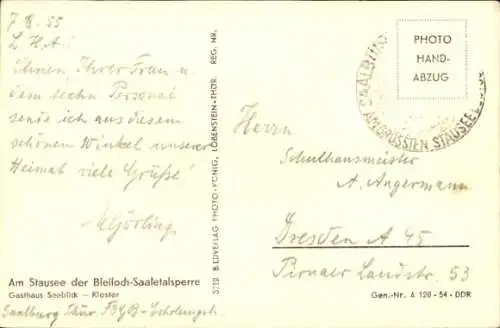 7. 55
L. H. A.!
Ihnen, Ihrer Frau u.
dem sechn Personal
sende ich aus diesem
schönen Winkel unserer
Heimat viele Grüße!
Am Stausee der Bleiloch-Saaletalsperre
Gasthaus Seeblick — Kloster
Saalburg Thür. FDGB-Erholungsh.
BILDVERLAG PHOTO-KÖNIG, LOBENSTEIN-THÜR. REG. NR.
PHOTO
HAND-
ABZUG
AM GRÖSSTEN STAUSEE
Herrn
Schulhausmeister
A. Angermann
Dresden A 45
Pirnaer Landstr. 53
Gen.-Nr. A 120 - 54 - DDR